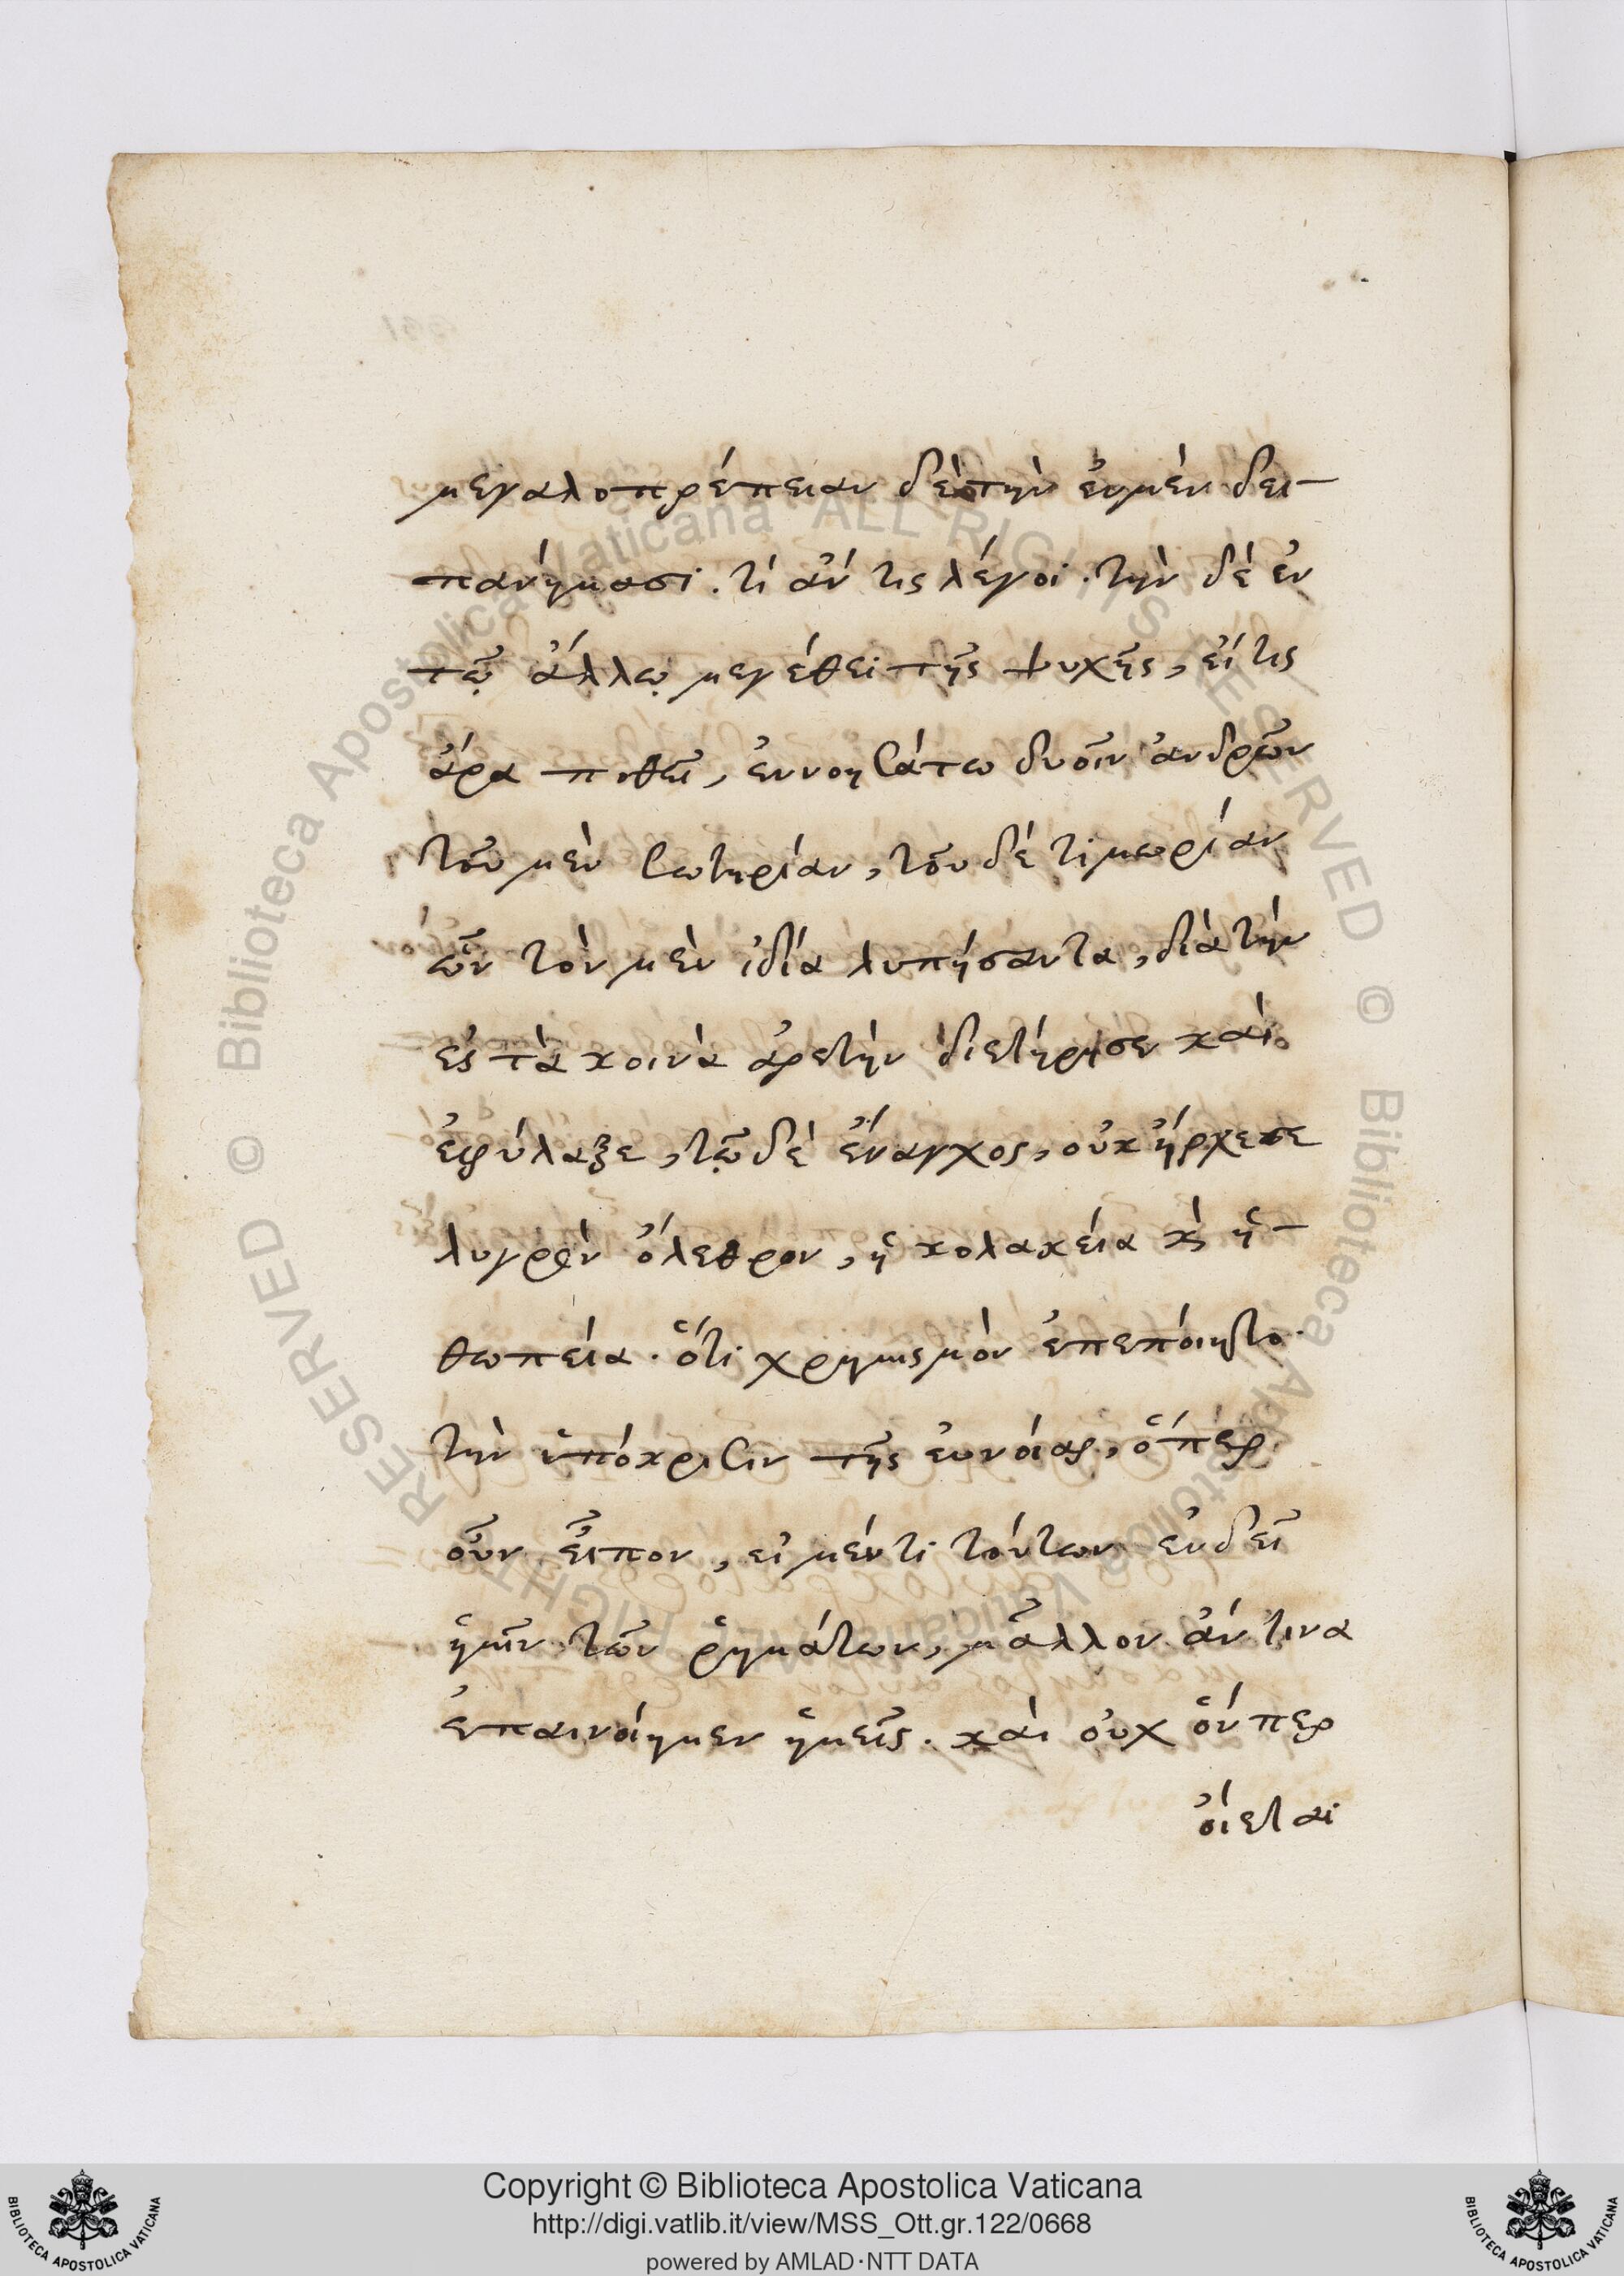 μεγαλοπρέπειαν δὲ τὴν ἐν μὲν δει-
πανήμασι. τί ἄν τις λέγοι. τὴν δὲ ἐν
τῷ ἄλλῳ μεγέθει τῆς ψυχῆς, εἴ τις
ἄρα ποθεῖ, ἐννοησάτω δυοῖν ἀνδρῶν
τοῦ μὲν σωτηρίαν, τοῦ δὲ τιμωρίαν
ὧν τὸν μὲν ἰδία λυπήσαντα, διὰ τὴν
ἐς τὰ κοινὰ ἀρετὴν διετήρησεν καὶ
ἐφύλαξε, τῷ δὲ ἔναγχος, οὐκ ἤρκεσε
λυγρὸν ὄλεθρον, ἡ κολακεία κὶ ἡ-
θωπεία. ὅτι χρημ μὸν ἐπεποίητο
τὴν ὑπόκρισιν τῆς εὐνοίας, ὅπερ
οὖν εἶπον, εἰ μέν τι τούτων ἐνδεῖ
ἡμῖν τῶν ῥημάτων, μᾶλλον ἄν τινα
ἐπαινοίημεν ἡμεῖς. καὶ οὐχ ὅνπερ
οἴεται
Copyright © Biblioteca Apostolica Vaticana
http://digi.vatlib.it/view/MSS_Ott.gr.122/0668
powered by AMLAD·NTT DATA
BIBLIOTECA APOSTOLICA VATICANA
BIBLIOTECA APOSTOLICA VATICANA
© Biblioteca Apostolica Vaticana ALL RIGHTS RESERVED © Biblioteca Apostolica Vaticana ALL RIGHTS RESERVED